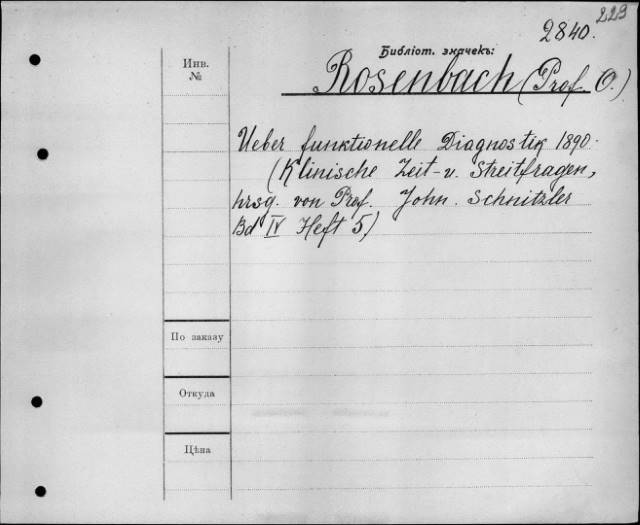 223
2840.
Библіот. значекъ:
Инв.
№
Rosenbach (Prof O.)
Ueber funktionelle Diagnostik 1890.
(Klinische Zeit- u. Streitfragen,
hrsg. von Prof. John. Schnitzler
Bd IV Heft 5)
По заказу
Откуда
Цѣна